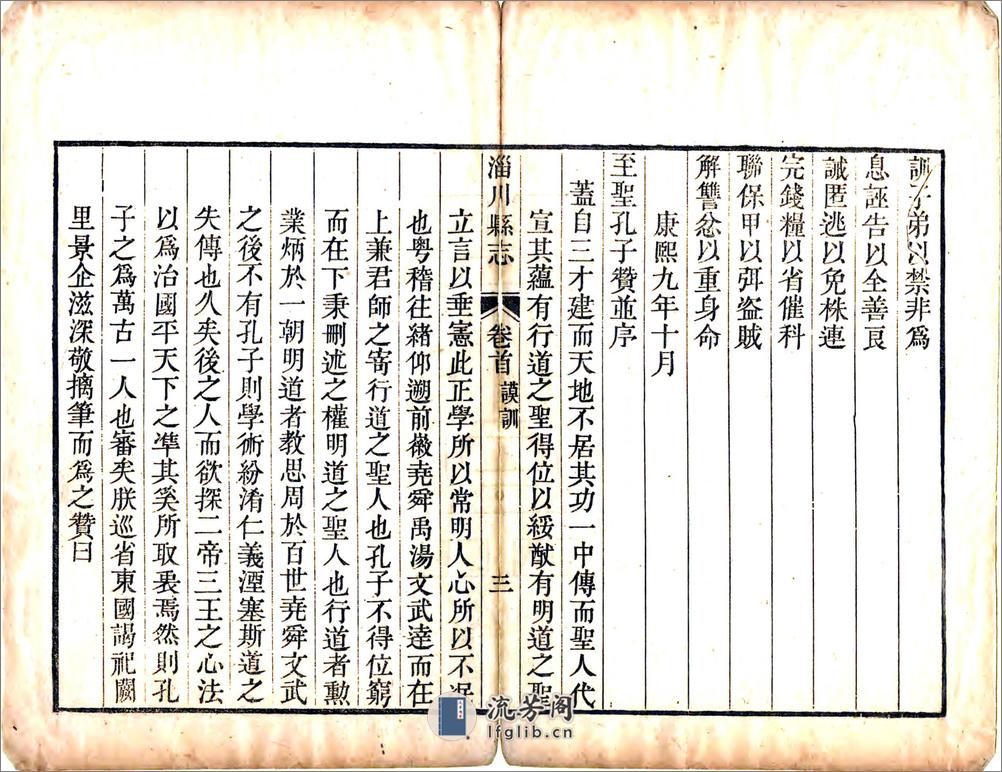 訓子弟以禁非爲
息誣告以全善良
誡匿逃以免株連
完錢糧以省催科
聯保甲以弭盜賊
解讐忿以重身命
康熙九年十月
至聖孔子贊並序
蓋自三才建而天地不居其功一中傳而聖人代
宣其蘊有行道之聖得位以綏猷有明道之聖
淄川縣志
卷首
謨訓
三
立言以垂憲此正學所以常明人心所以不泯
也粵稽往緒仰遡前徽堯舜禹湯文武達而在
上兼君師之寄行道之聖人也孔子不得位窮
而在下秉刪述之權明道之聖人也行道者勲
業炳於一朝明道者教思周於百世堯舜文武
之後不有孔子則學術紛淆仁義湮塞斯道之
失傳也久矣後之人而欲探二帝三王之心法
以爲治國平天下之準其奚所取衷焉然則孔
子之爲萬古一人也審矣朕巡省東國謁祀闕
里景企滋深敬摛筆而爲之贊曰
流芳阁
lfglib.cn